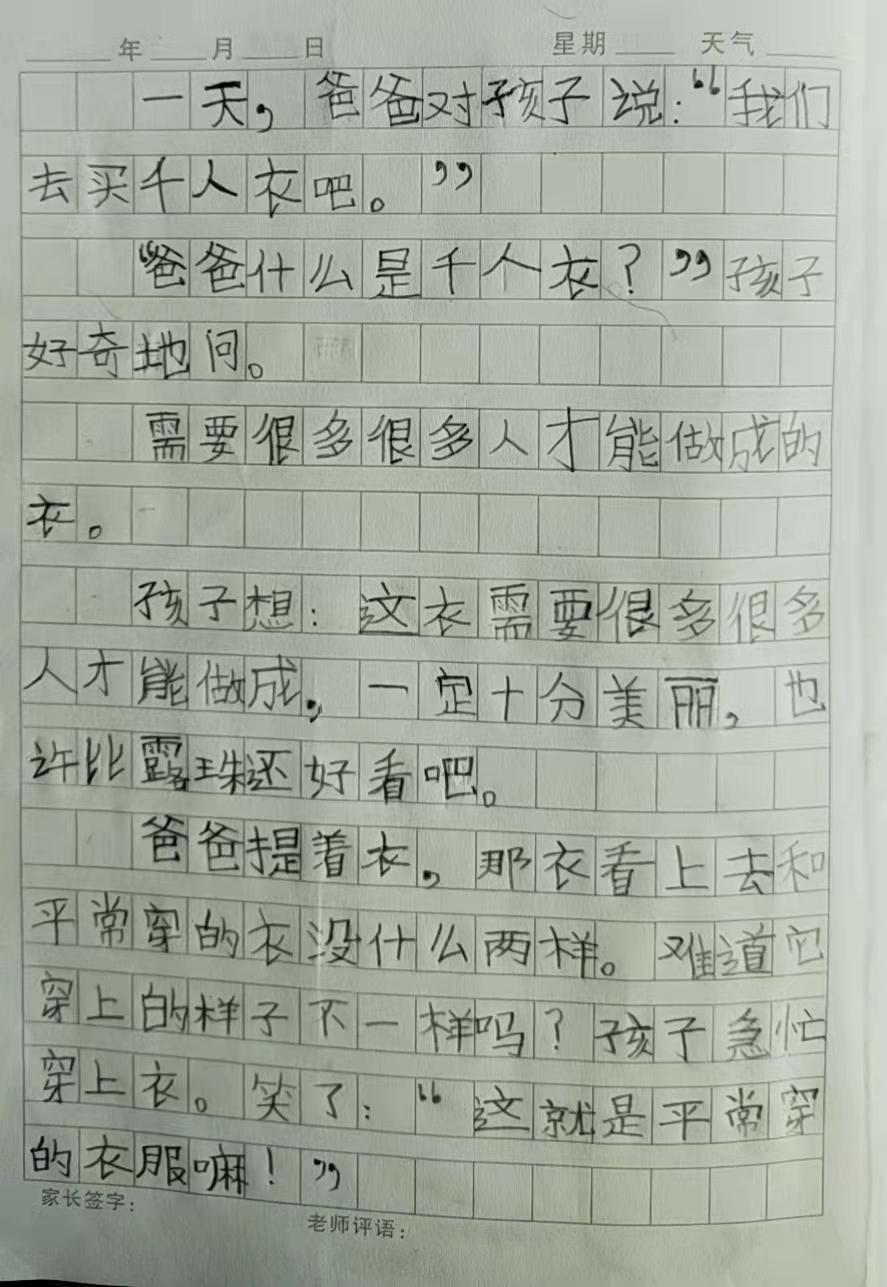 年 月 日 星期 天气
一天，爸爸对孩子说：“我们
去买千人衣吧。”
“爸爸什么是千个衣？”孩子
好奇地问。
需要很多很多人才能做成的
衣。
孩子想：这衣需要很多很多
人才能做成，一定十分美丽，也
许比露珠还好看吧。
爸爸提着衣，那衣看上去和
平常穿的衣没什么两样。难道它
穿上的样子不一样吗？孩子急忙
穿上衣。笑了：“这就是平常穿
的衣服嘛！”
家长签字：
老师评语：